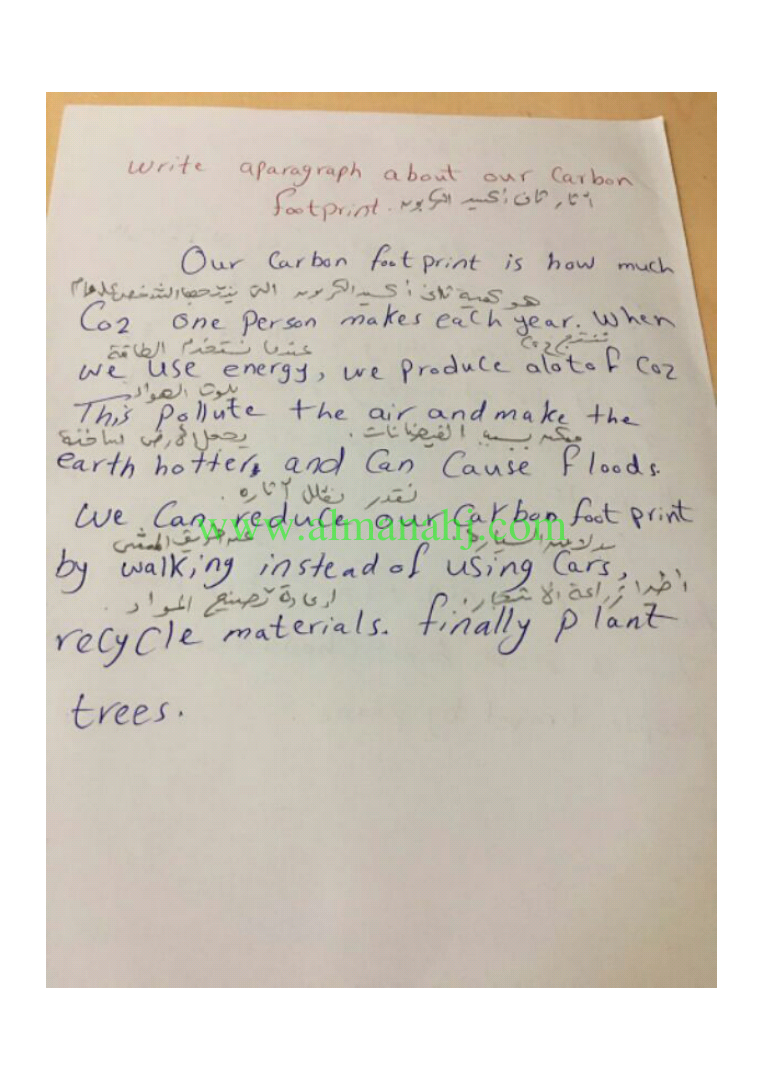 write aparagraph about our Carbon
footprint. آثار ثاني أكسيد الكربون
Our Carbon footprint is how much
هو كمية ثاني أكسيد الكربون التي ينتجها الشخص كل عام
Co2 one Person makes each year. When
عندما نستخدم الطاقة ننتج Co2
we use energy, we produce alot of Co2
يلوث الهواء
This Pollute the air and make the
يجعل الأرض ساخنة ممكن يسبب الفيضانات.
earth hotter, and Can Cause floods.
نقدر نقلل آثاره.
we Can reduce our Carbon foot print
www.almanahj.com
عن طريق المشي بدلا من السيارة
by walking instead of using Cars,
إعادة تصنيع المواد. زراعة الاشجار.
recycle materials. finally plant
trees.